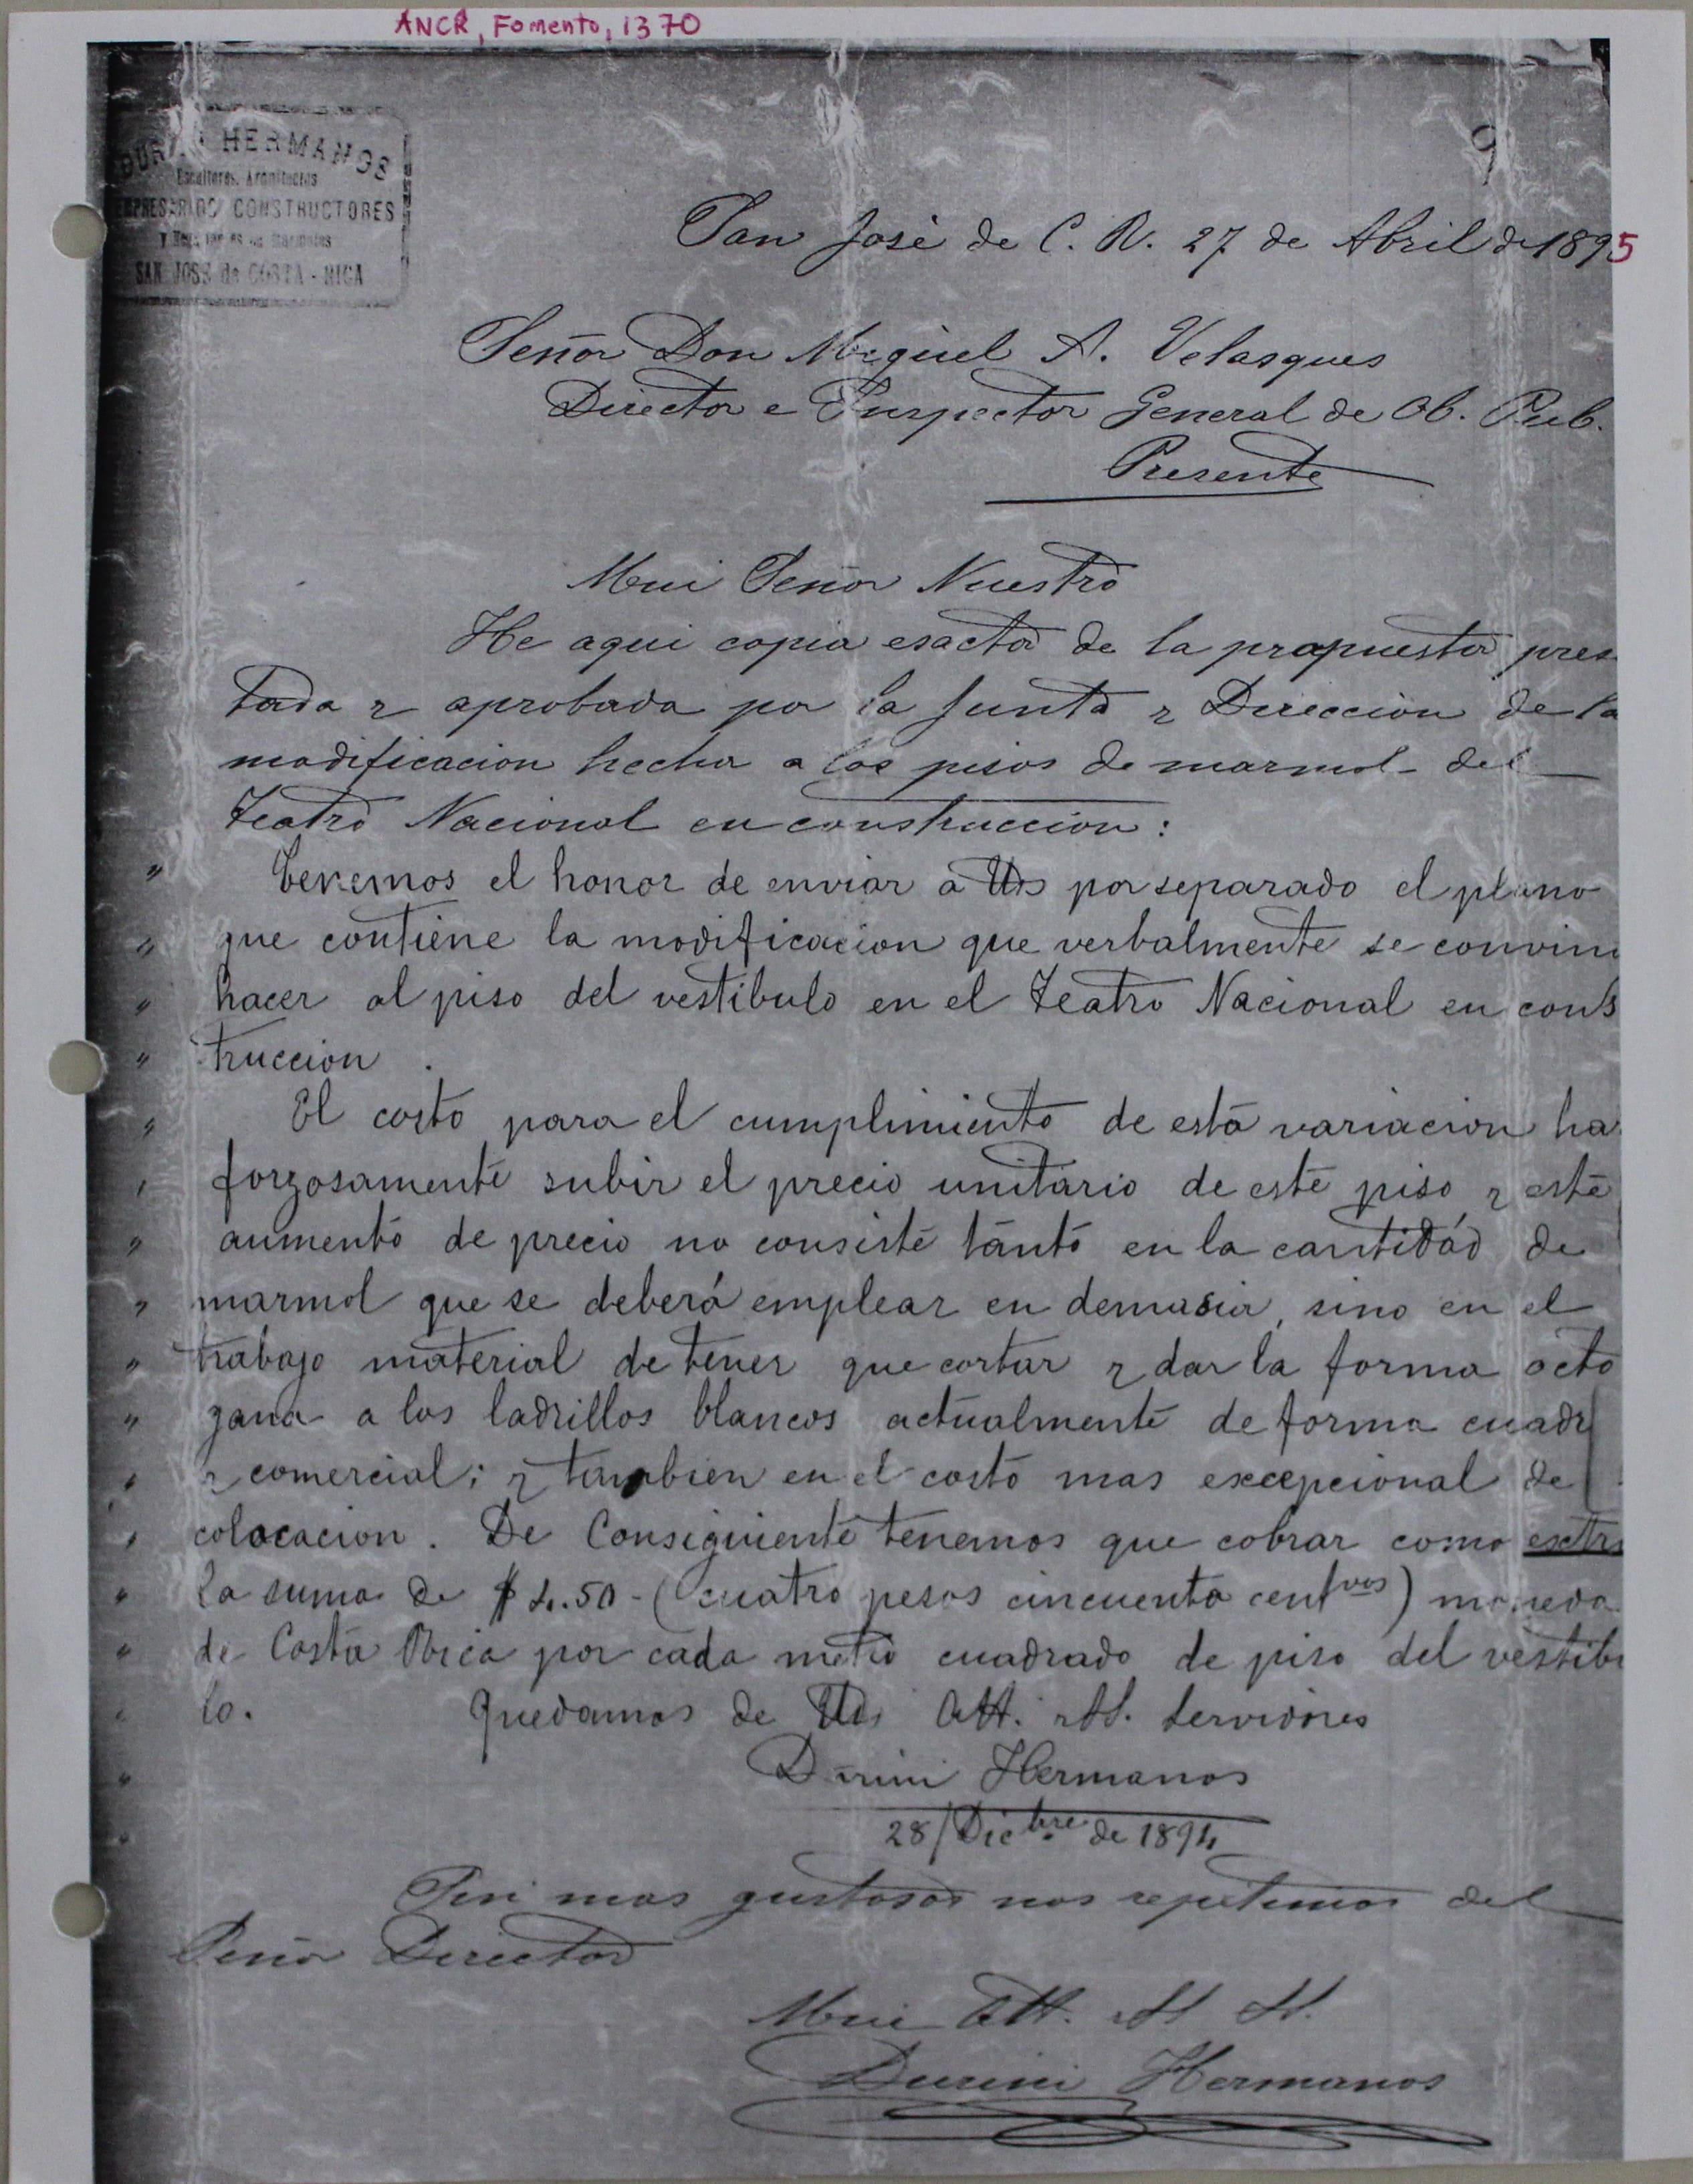 ANCR, Fomento, 1370
HERMANOS
Escultores, Arquitectos
EMPRESARIOS CONSTRUCTORES
SAN JOSÉ de COSTA-RICA
9
San José de C. R. 27 de Abril de 1895
Señor Don Miguel A. Velasques
Director e Inspector General de Ob. Pub.
Presente
Mui Señor Nuestro
He aqui copia esacta de la propuesta presen
tada y aprobada por la Junta y Direccion de la
modificacion hecha a los pisos de marmol del
Teatro Nacional en construccion:
" Tenemos el honor de enviar a Uds por separado el plano
" que contiene la modificacion que verbalmente se convino
" hacer al piso del vestibulo en el Teatro Nacional en cons
" truccion.
" El costo para el cumplimiento de esta variacion ha
" forzosamente subir el precio unitario de este piso y este
" aumento de precio no consiste tanto en la cantidad de
" marmol que se deberá emplear en demasia, sino en el
" trabajo material de tener que cortar y dar la forma octo
" gana a los ladrillos blancos actualmente de forma cuadr
" y comercial; y tambien en el costo mas excepcional de
" colocacion. De Consiguiente tenemos que cobrar como extra
" la suma de $ 4.50 - (cuatro pesos cincuenta centvos) moneda
" de Costa Rica por cada metro cuadrado de piso del vestibu
" lo. Quedamos de Uds Att. SS. Servidores
" Durini Hermanos
" 28/Dicbre de 1894
Sin mas gustosos nos repetimos del
Señor Director
Mui Att. S S.
Durini Hermanos